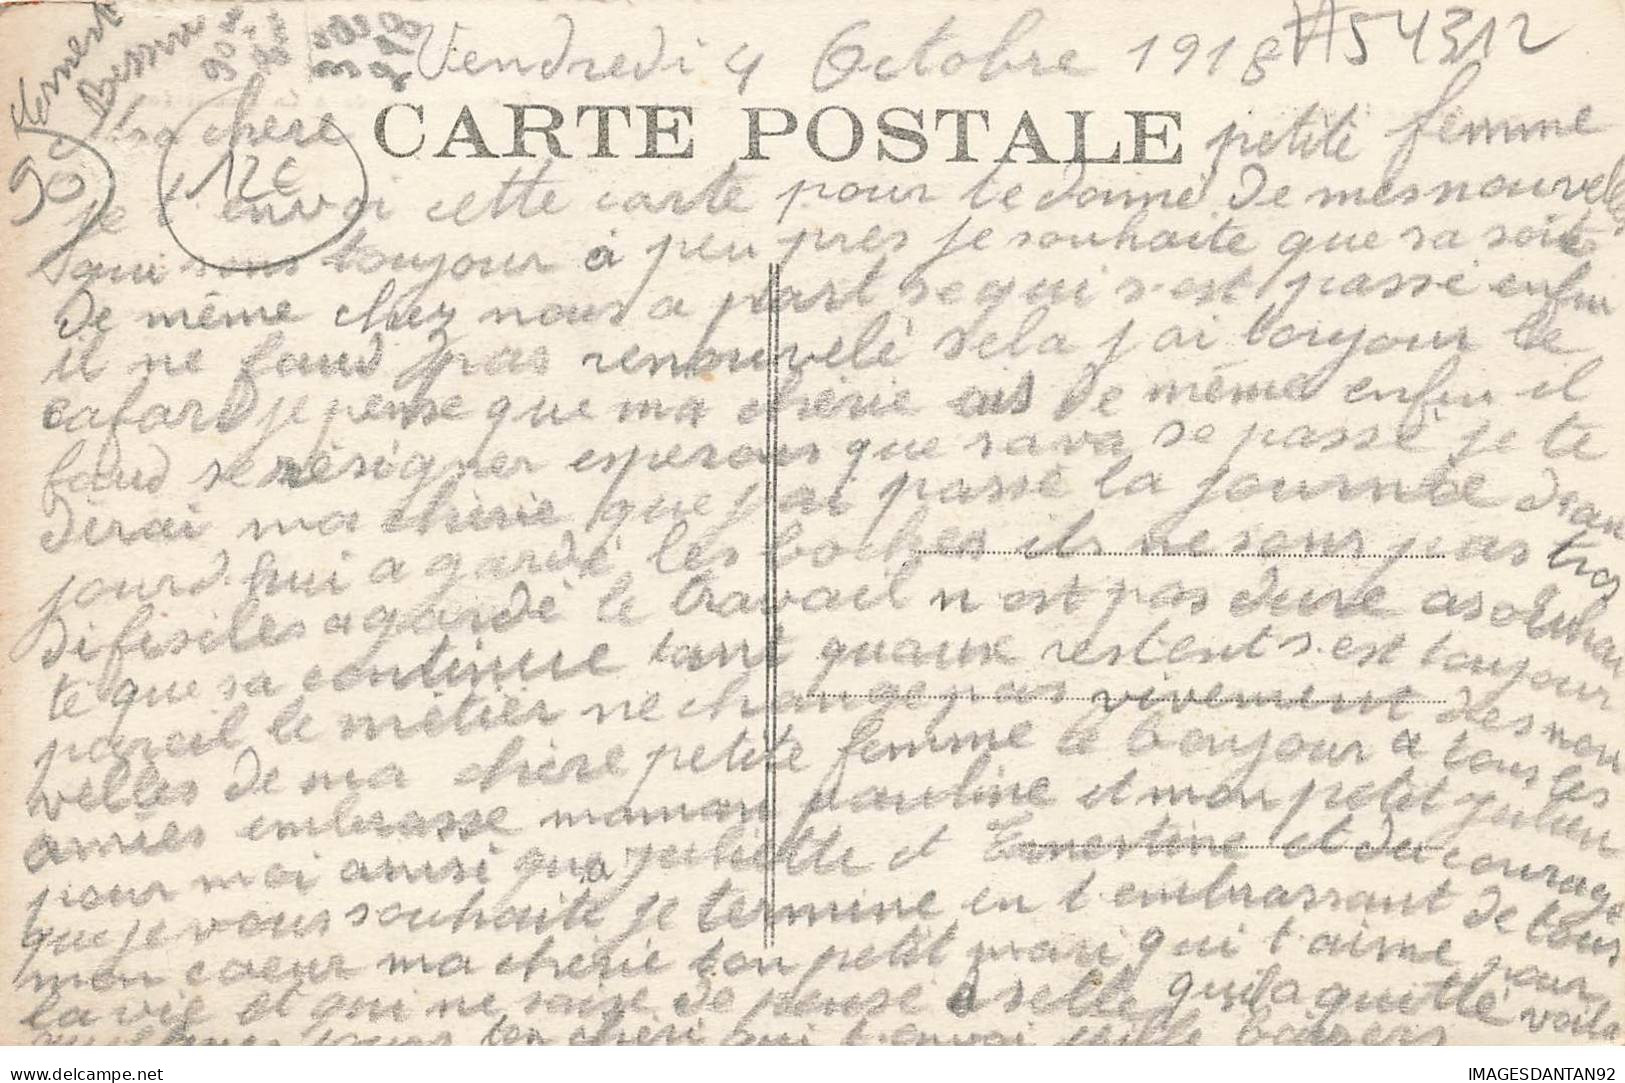 Vendredi 4 Octobre 1918 #54312
CARTE POSTALE
12€
Ma chere petite femme
je t'envoi cette carte pour te donné de mes nouvelles
qui sons toujour a peu pres je souhaite que sa soit
de même chez nous a part se qui s'est passé enfin
il ne faud pas renouvelé sela j'ai toujour le
cafard je pense que ma cherie ais de même enfin il
faud se résigner esperons que sava se passé je te
dirai ma cherie que j'ai passé la journée d'eau
jourd'hui a gardé les boches ils ne sons pas trop
difisiles a gardé le travail n'est pas dure a souhai
te que sa continue tant quaux restent s'est toujour
pareil le métier ne change pas vivement des nou
velles de ma chère petite femme le bonjour a tous les
amies embrasse maman pauline et mon petit julien
pour moi ainsi qua juliette et Ernestine et du courage
que je vous souhaite je termine en t'embrassant de tous
mon coeur ma cherie ton petit mari qui t'aime pour
la vie et qui ne saise de pensé a selle quila quitté voila
jours ton cheri qui t'envoi mille baisers
IMAGESDANTAN92